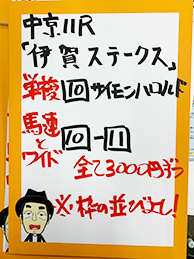 中京11R
「伊賀ステークス」
単複10サイモンハロルド
馬連とワイド 10-11
全て3000円ずつ
※枠の並びよし!